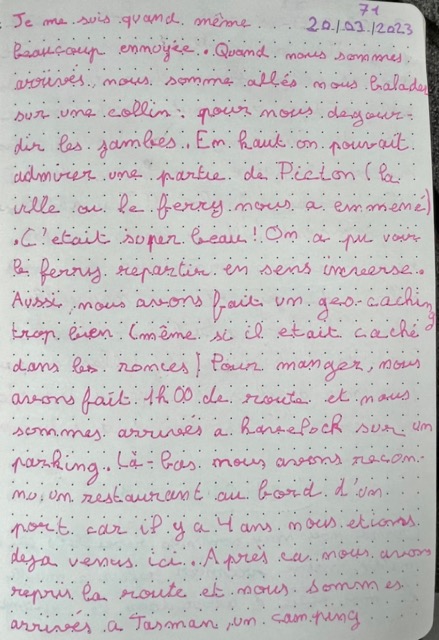 71
Je me suis quand même 20/03/2023
beaucoup ennuyée. Quand nous sommes
arrivés, nous somme allés nous balader
sur une collin: pour nous degour-
dir les jambes. En haut on pouvait
admirer une partie de Picton (la
ville ou le ferry nous a emmené)
. C'était super beau! On a pu voir
le ferry repartir en sens inverse.
Aussi, nous avons fait un geo-caching
trop bien (même si il etait caché
dans les ronces) Pour manger, nous
avons fait 1h00 de route et nous
sommes arrivés a havelock sur un
parking. Là-bas nous avons recon-
nu un restaurant au bord d'un
port car il y a 4 ans nous etions
deja venus ici. Après ca nous avons
repris la route et nous sommes
arrivés a Tasman, un camping